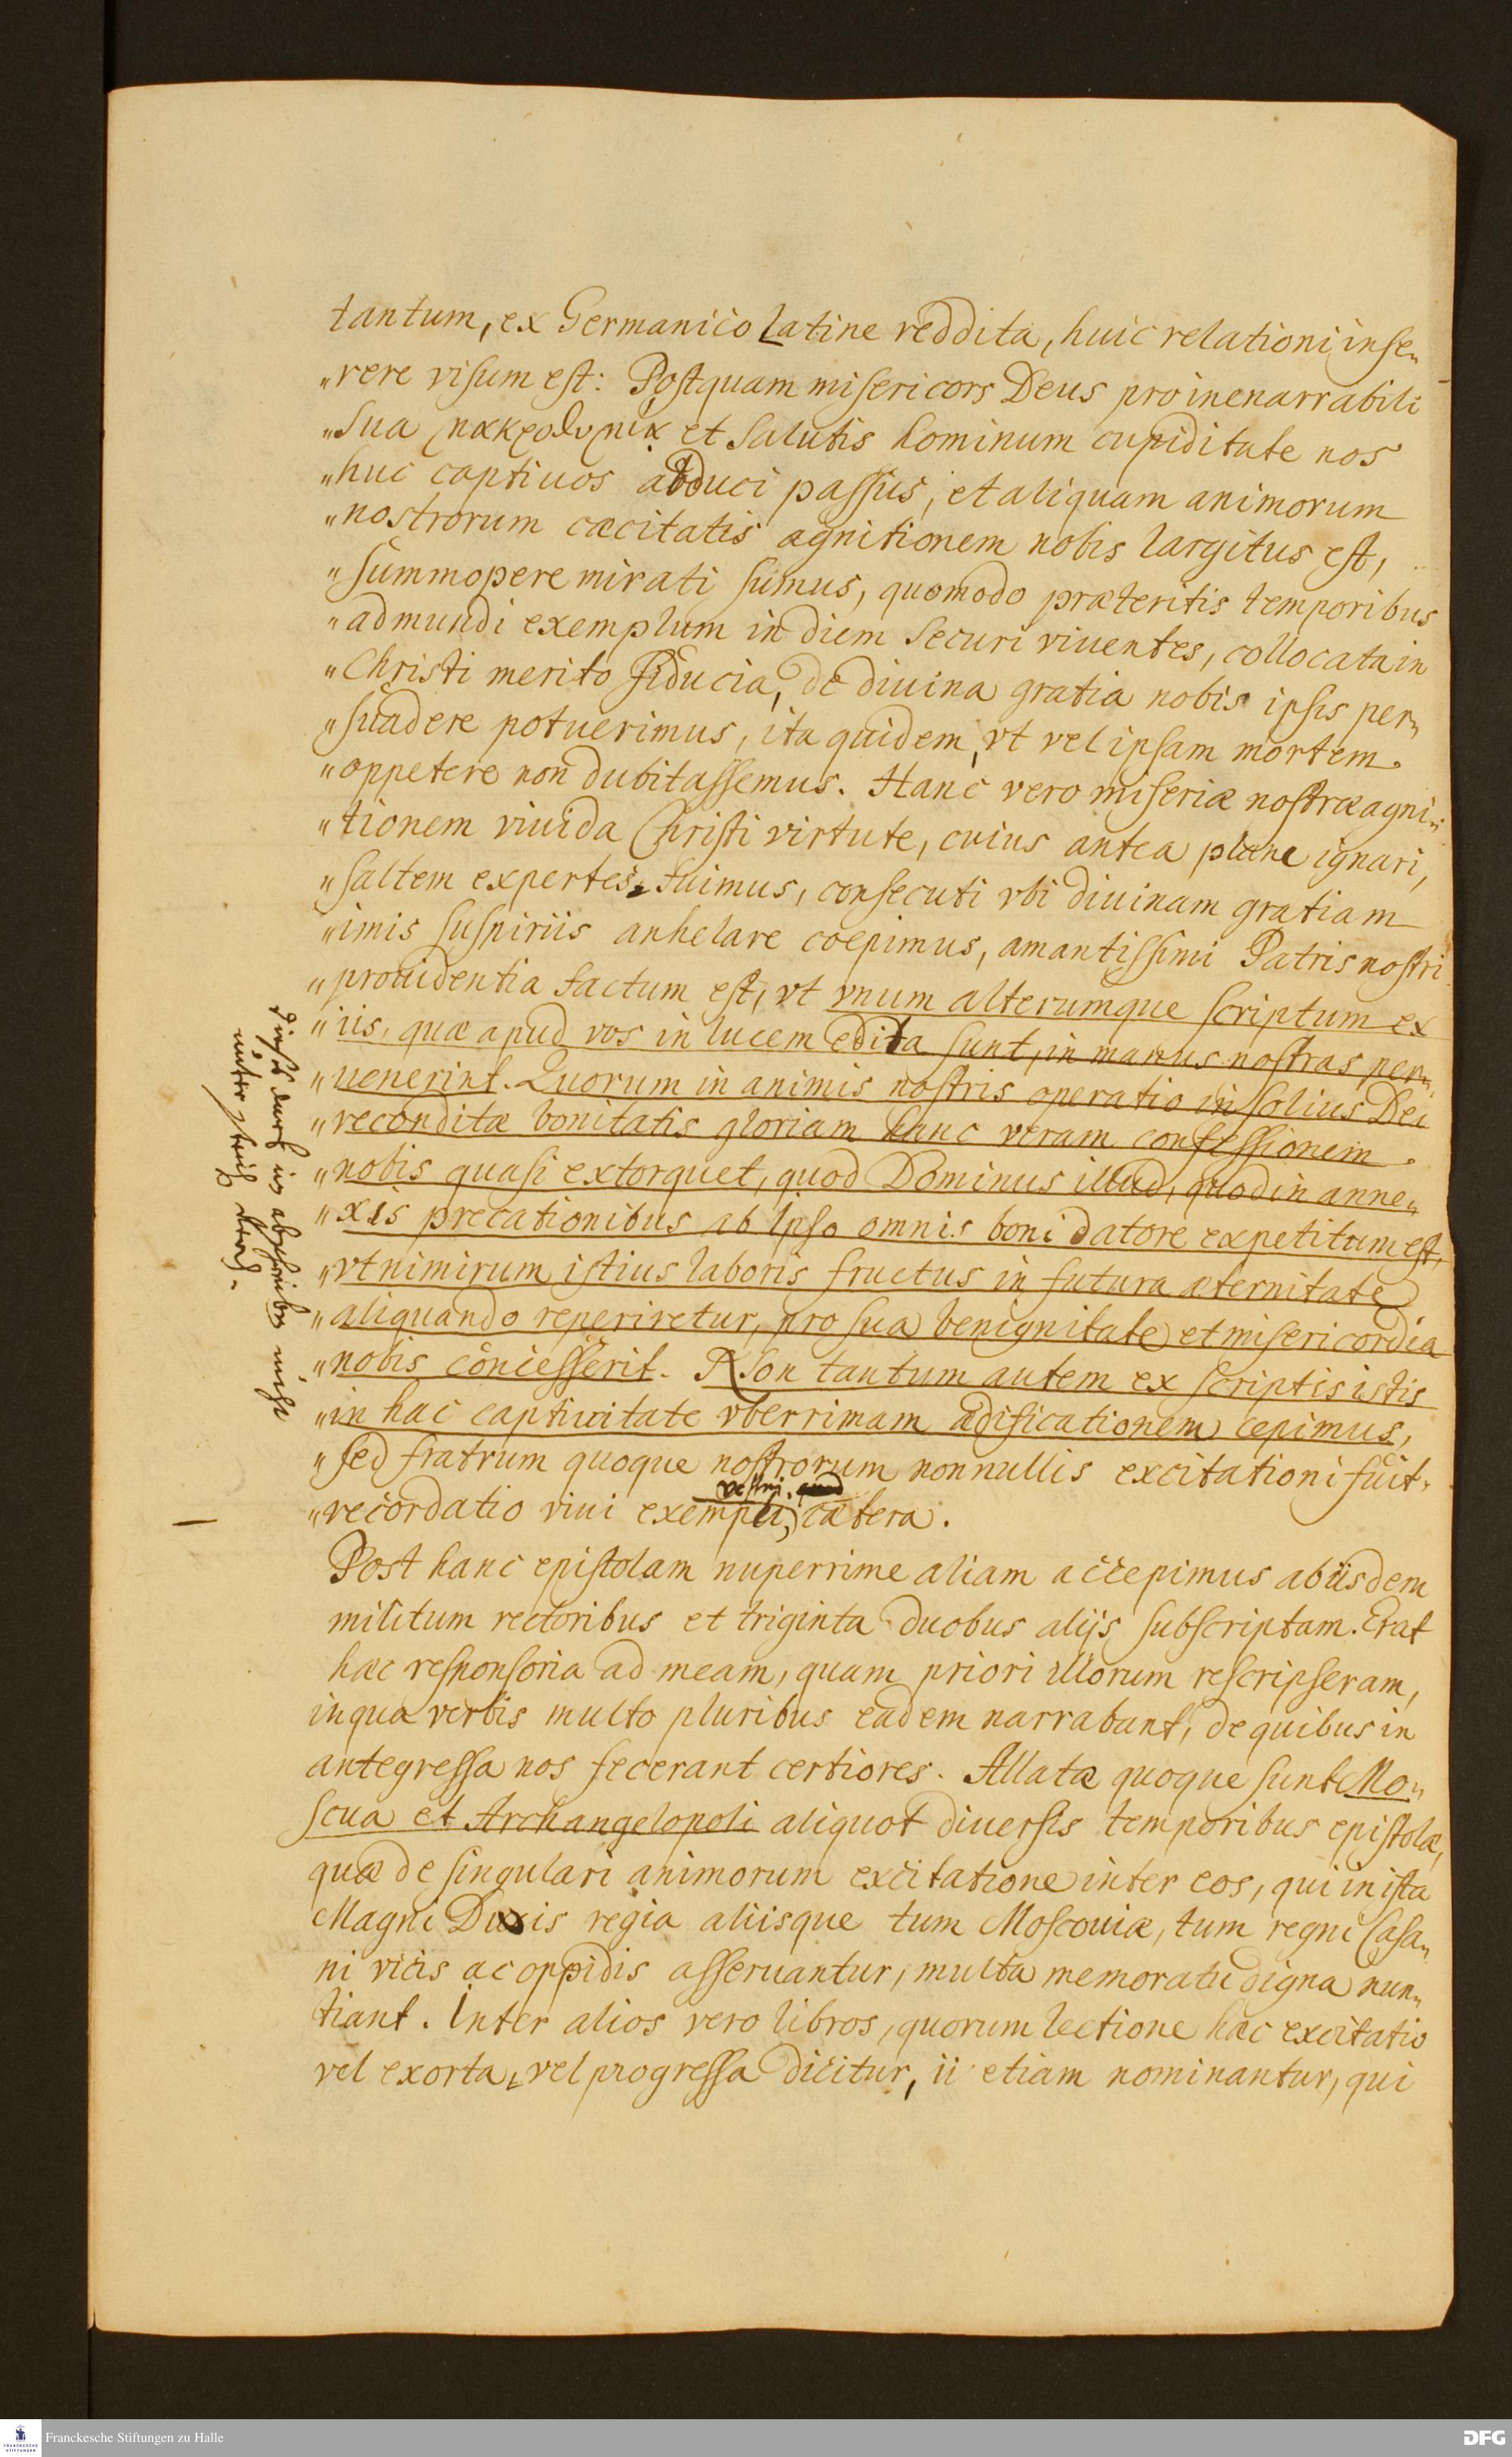 tantum, ex Germanico Latine reddita, huic relationi inse„
„rere visum est: Postquam misericors Deus pro inenarrabili
„sua μακροθυμίᾳ et salutis hominum cupiditate nos
„huc captiuos abduci passus, et aliquam animorum
„nostrorum cæcitatis agnitionem nobis largitus est,
„summopere mirati sumus, quomodo præteritis temporibus
„ad mundi exemplum in diem securi viuentes, collocata in
„Christi merito fiducia, de diuina gratia nobis ipsis per„
„suadere potuerimus, ita quidem, vt vel ipsam mortem
„oppetere non dubitassemus. Hanc vero miseriæ nostræ agni„
„tionem viuida Christi virtute, cuius antea plane ignari,
„saltem expertes, fuimus, consecuti vbi diuinam gratiam
„imis suspiriis anhelare coepimus, amantissimi Patris nostri
„prouidentia factum est, vt vnum alterumque scriptum ex
„iis, quæ apud vos in lucem edita sunt, in manus nostras per„
„uenerint. Quorum in animis nostris operatio in solius Dei
„reconditæ bonitatis gloriam hanc veram confessionem
„nobis quasi extorquet, quod Dominus illud, quod in anne„
„xis precationibus ab ipso omnis boni datore expetitum est,
„vt nimirum istius laboris fructus in futura æternitate
„aliquando reperiretur, pro sua benignitate et misericordia
„nobis concesserit. Non tantum autem ex scriptis istis
„in hac captiuitate vberrimam ædificationem cepimus,
„sed fratrum quoque nostrorum nonnullis excitationi fuit
vestri.
„recordatio viui exempli, cætera.
Post hanc epistolam nuperrime aliam accepimus ab iisdem
militum rectoribus et triginta duobus alijs subscriptam. Erat
hæc responsoria ad meam, quam priori illorum rescripseram,
in qua verbis multo pluribus eadem narrabant, de quibus in
antegressa nos fecerant certiores. Allatæ quoque sunt Mo„
scua et Archangelopoli aliquot diuersis temporibus epistolæ,
quæ de singulari animorum excitatione inter eos, qui in ista
Magni Ducis regia aliisque tum Moscouiæ, tum regni Casa„
ni vicis ac oppidis asseruantur, multa memoratu digna nun„
tiant. Inter alios vero libros, quorum lectione hæc excitatio
vel exorta, vel progressa dicitur, ii etiam nominantur, qui
dieses darf im abschreiben nicht
unter strich
Franckesche Stiftungen zu Halle
DFG